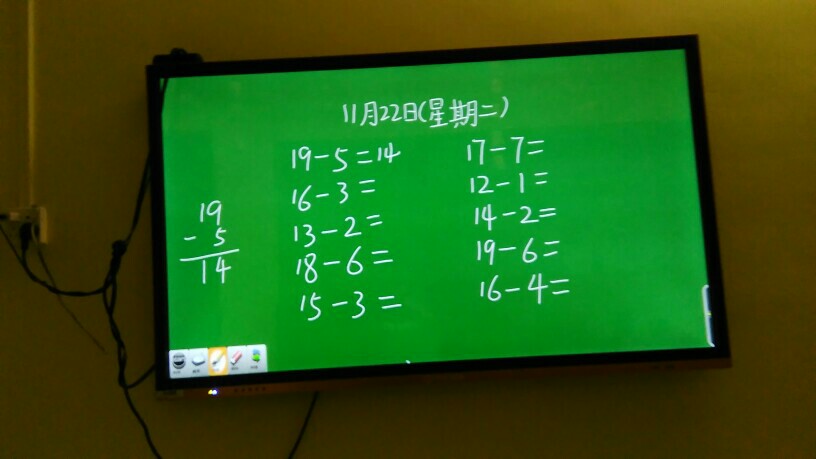 11月22日(星期二)
19-5=14
16-3=
13-2=
18-6=
15-3=
17-7=
12-1=
14-2=
19-6=
16-4=
19
- 5
14